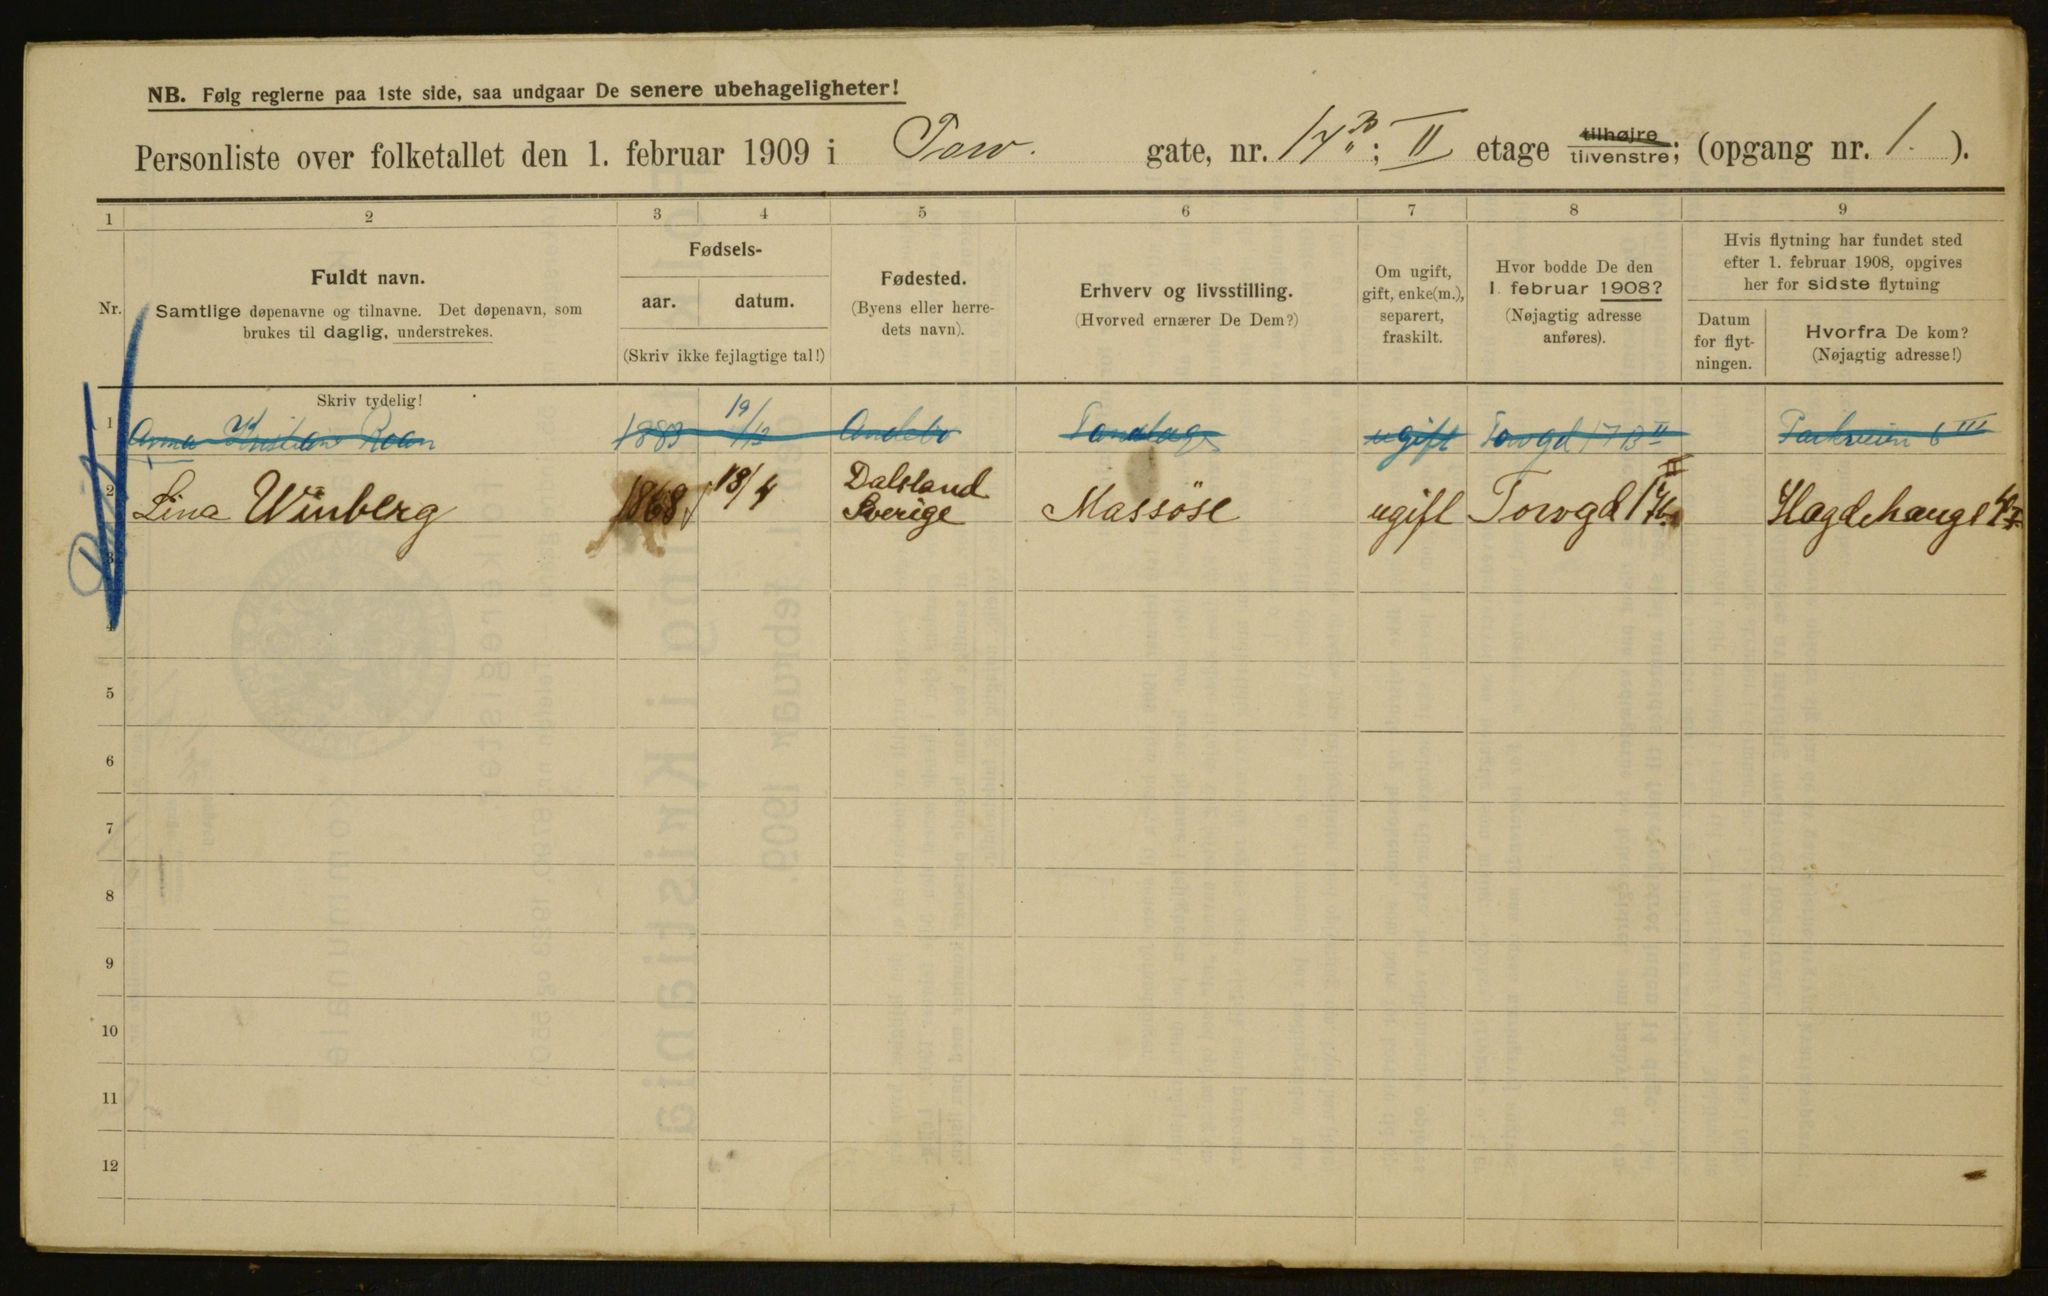 NB. Følg reglerne paa 1ste side, saa undgaar De senere ubehageligheter!
Personliste over folketallet den 1. februar 1909 i Torv. gate, nr. 17 B; II etage tilhøjre tilvenstre; (opgang nr. 1. ).
1 2 3 4 5 6 7 8 9
Nr.
Fuldt navn.
Samtlige døpenavne og tilnavne. Det døpenavn, som
brukes til daglig, understrekes.
Fødsels-
aar. datum.
(Skriv ikke fejlagtige tal!)
Fødested.
(Byens eller herre-
dets navn).
Erhverv og livsstilling.
(Hvorved ernærer De Dem?)
Om ugift,
gift, enke(m.),
separert,
fraskilt.
Hvor bodde De den
1. februar 1908?
(Nøjagtig adresse
anføres).
Hvis flytning har fundet sted
efter 1. februar 1908, opgives
her for sidste flytning
Datum
for flyt-
ningen.
Hvorfra De kom?
(Nøjagtig adresse!)
Skriv tydelig!
1 Anna Kristiane Roan 1883 19/12 Andebo ugift Torvgd 17 B II Parkveien 6 III
2 Lina Winberg 1868 18/4 Dalsland Sverige Massöse ugift Torvgd 17 b II Hagdehaugs
3
4
5
6
7
8
9
10
11
12